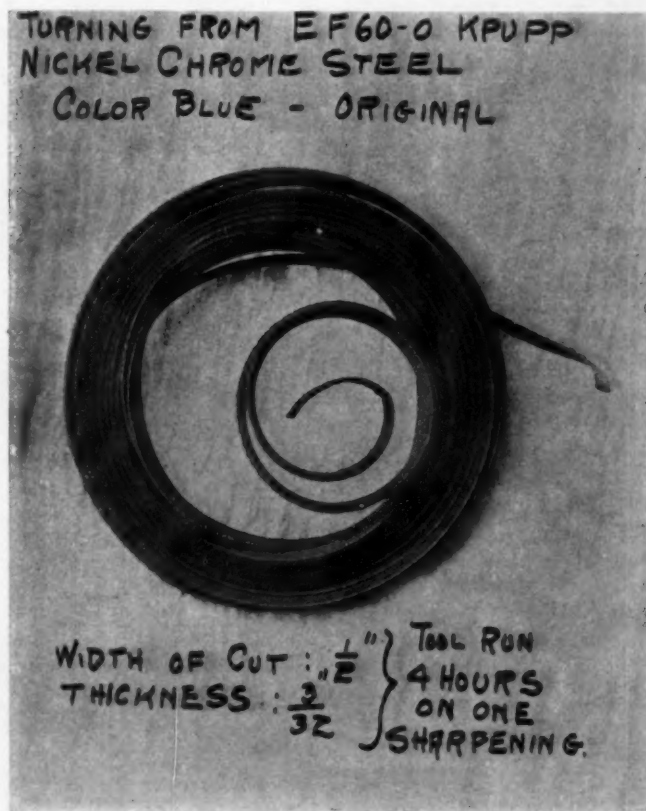 TURNING FROM EF60-O KPUPP
NICKEL CHROME STEEL
COLOR BLUE - ORIGINAL
WIDTH OF CUT : 1/2"
THICKNESS : 3/32"
TOOL RUN
4 HOURS
ON ONE
SHARPENING.